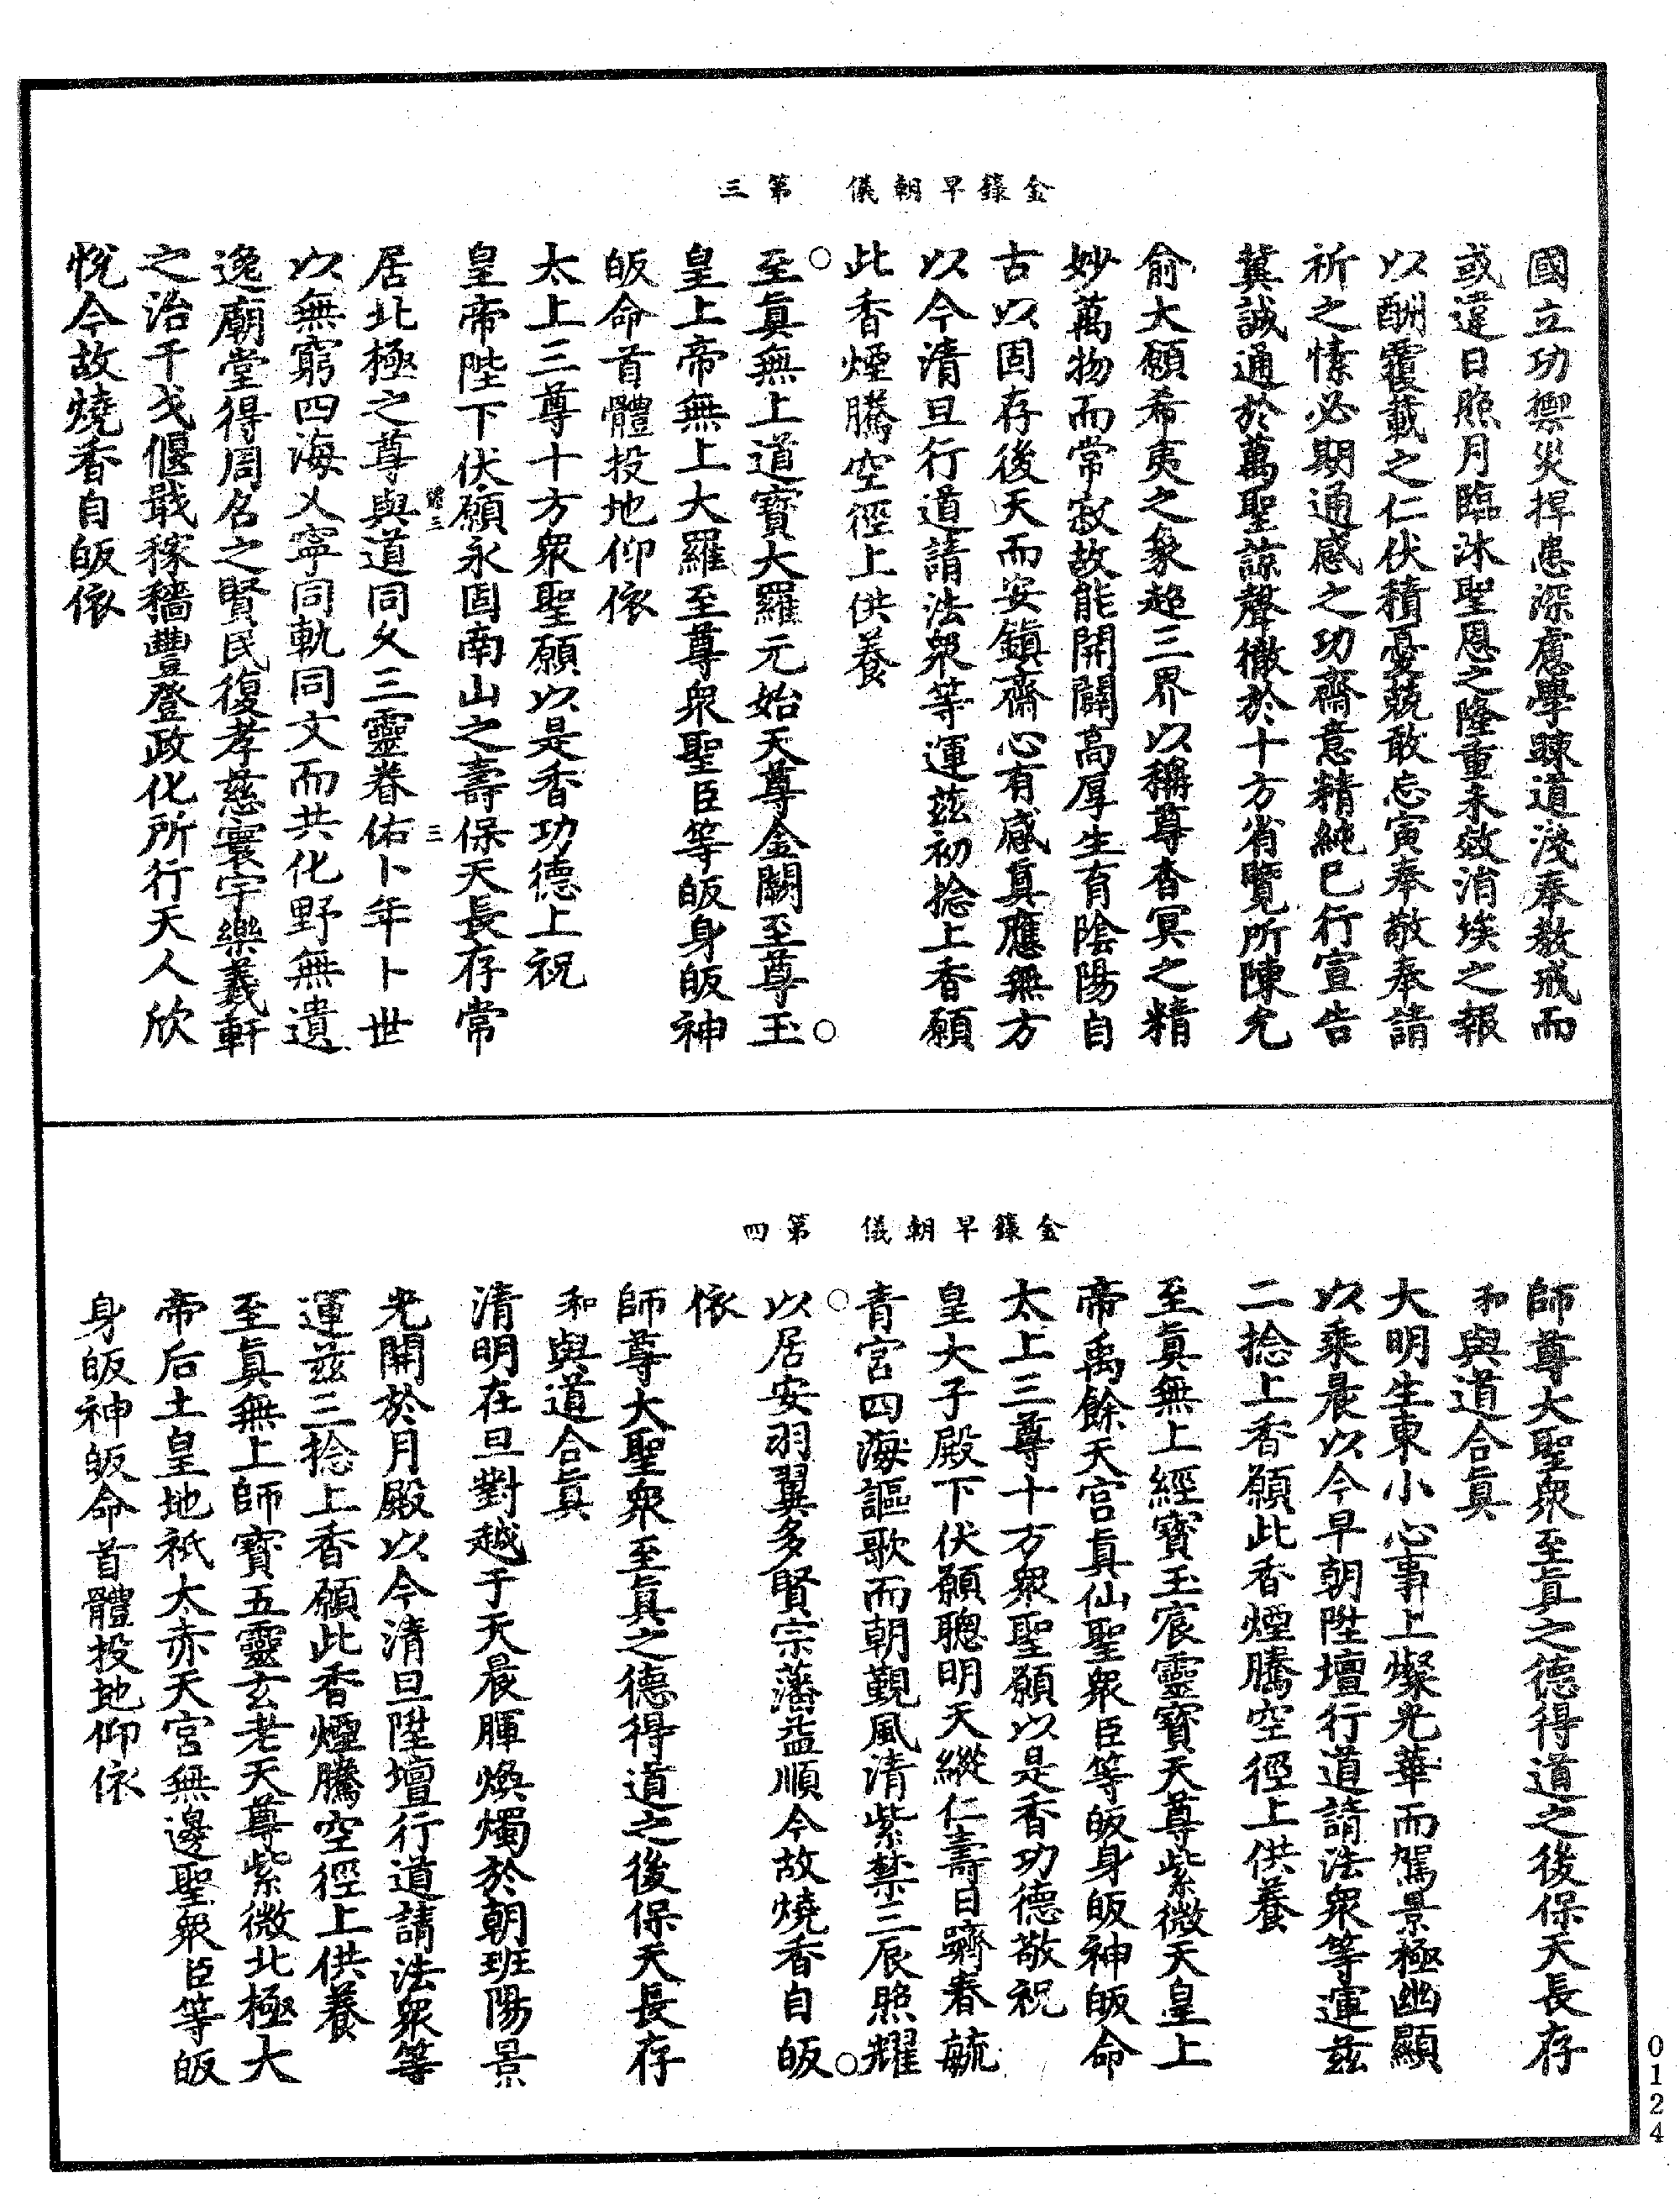 金籙早朝儀　第三
國立功禦災捍患深慮學踈道淺奉教戒而
或違日照月臨沐聖恩之隆重未效消埃之報
以酬覆載之仁伏積憂兢敢忘寅奉敬奉請
祈之愫必期通感之功齋意精純已行宣告
冀誠通於萬聖諒聲徹於十方省覽所陳允
俞大願希夷之象超三界以稱尊杳冥之精
妙萬物而常寂故能開闢高厚生育陰陽自
古以固存後天而安鎮齋心有感真應無方
以今清旦行道請法衆等運茲初捻上香願
此香煙騰空徑上供養
至真無上道寶大羅元始天尊金闕至尊玉
皇上帝無上大羅至尊衆聖臣等皈身皈神
皈命首體投地仰依
太上三尊十方衆聖願以是香功德上祝
皇帝陛下伏願永固南山之壽保天長存常
三
居北極之尊與道同久三靈眷佑卜年卜世
以無窮四海乂寧同軌同文而共化野無遺
逸廟堂得周名之賢民復孝慈寰宇樂羲軒
之治干戈偃戢稼穡豐登政化所行天人欣
悅今故燒香自皈依
金籙早朝儀　第四
師尊大聖衆至真之德得道之後保天長存
和與道合真
大明生東小心事上燦光華而駕景極幽顯
以乘晨以今早朝陞壇行道請法衆等運茲
二捻上香願此香煙騰空徑上供養
至真無上經寶玉宸靈寶天尊紫微天皇上
帝禹餘天宮真仙聖衆臣等皈身皈神皈命
太上三尊十方衆聖願以是香功德敬祝
皇太子殿下伏願聰明天縱仁壽日躋春毓
青宮四海謳歌而朝覲風清紫禁三辰照耀
以居安羽翼多賢宗藩益順今故燒香自皈
依
師尊大聖衆至真之德得道之後保天長存
和與道合真
清明在旦對越于天晨暉煥燭於朝班陽景
光開於月殿以今清旦陞壇行道請法衆等
運茲三捻上香願此香煙騰空徑上供養
至真無上師寶五靈玄老天尊紫微北極大
帝后土皇地祇太赤天宮無邊聖衆臣等皈
身皈神皈命首體投地仰依
0124